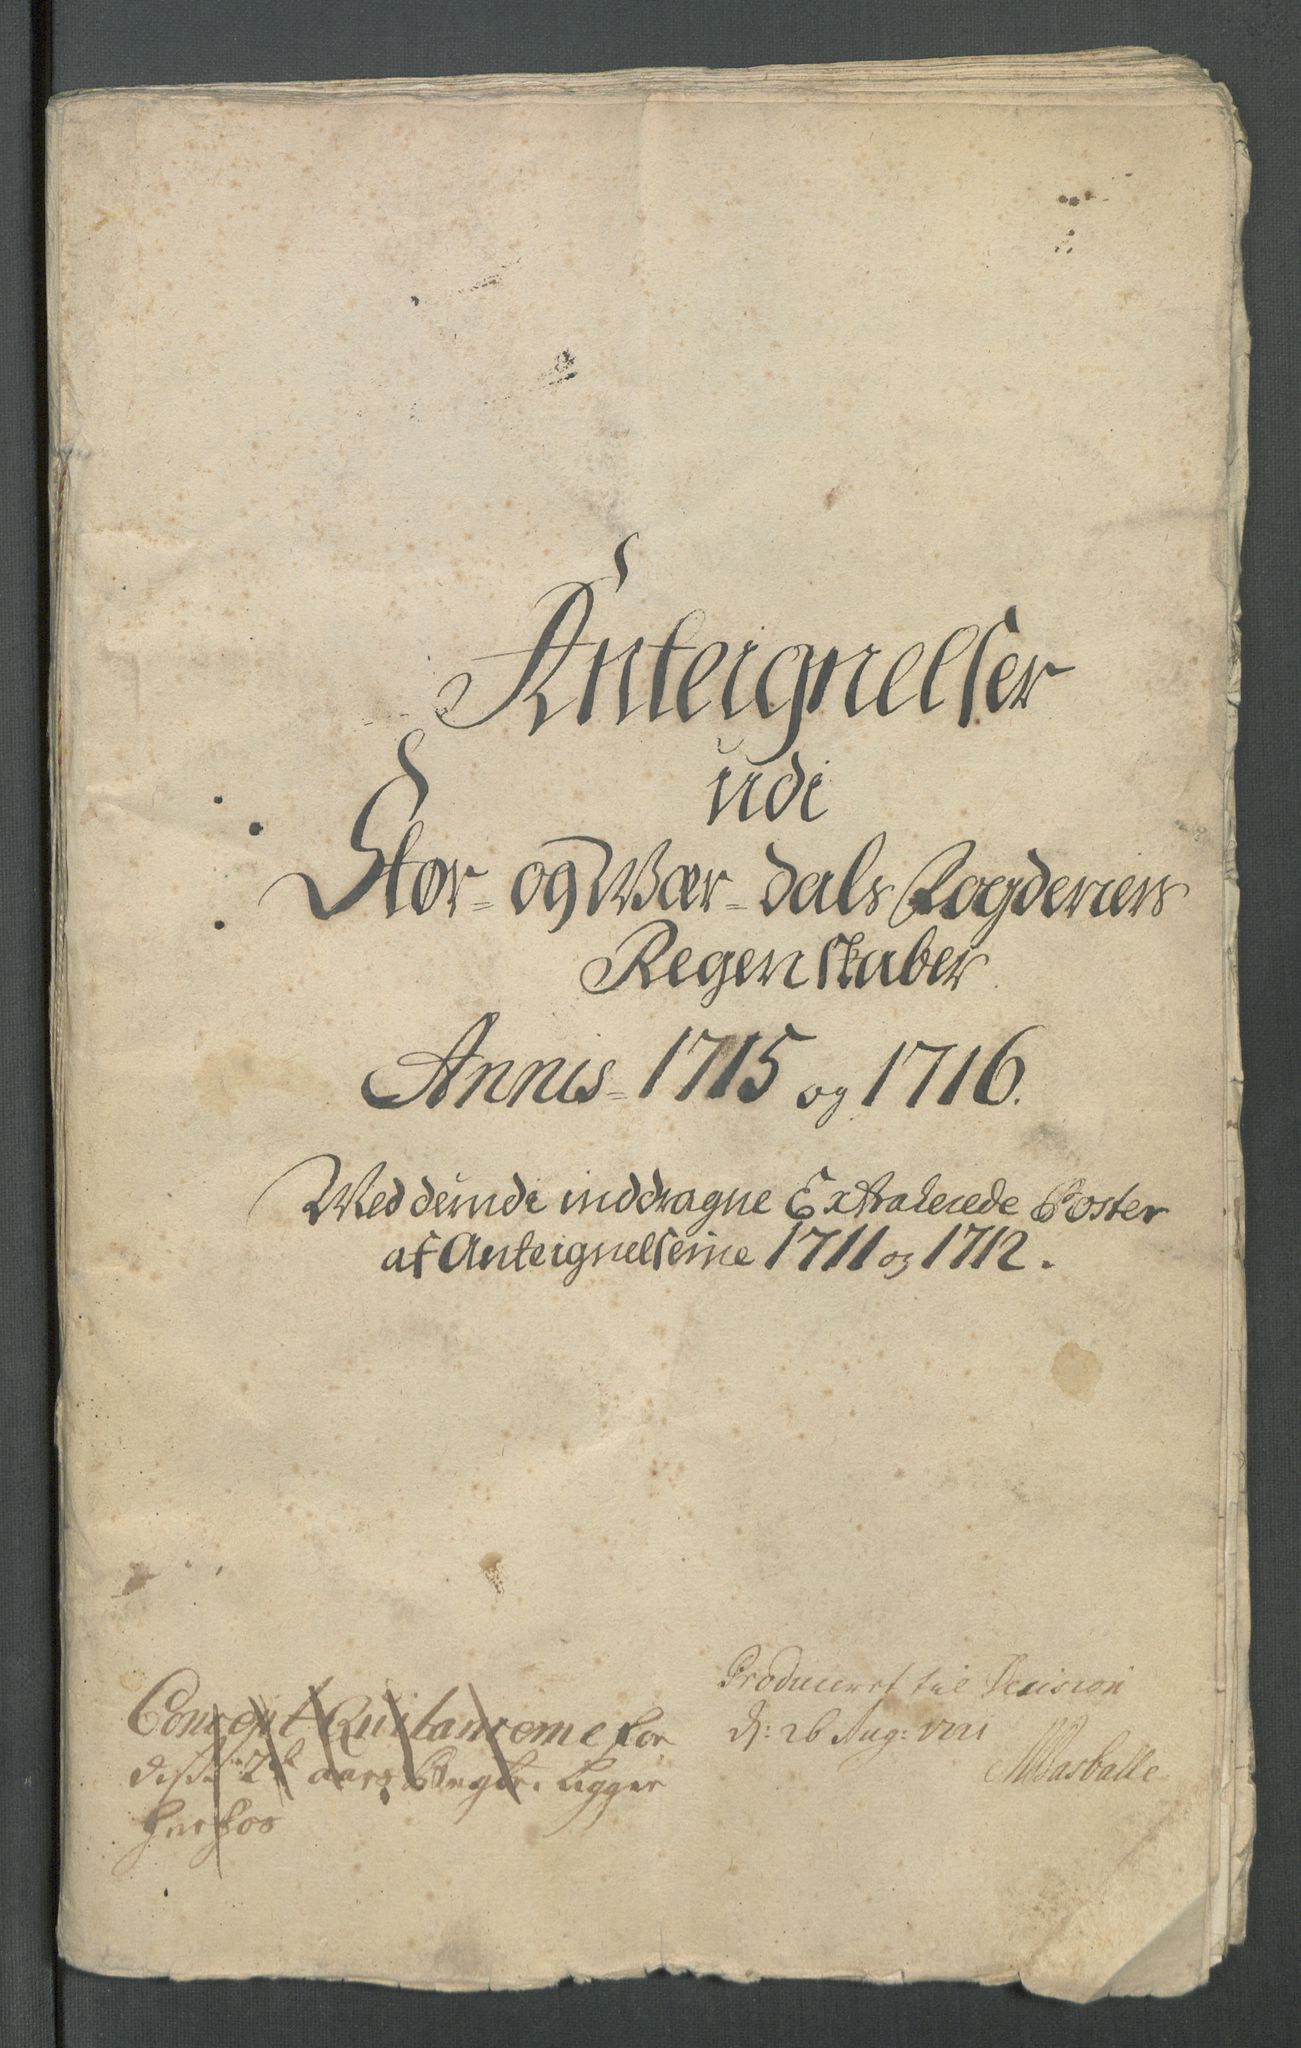 Anteignelser
udi
Stør- og Wær-dals Fogderiers
Regenskaber
Annis- 1715 og 1716.
Wed deri inddragne Extraherede Poster
af Anteignelserne 1711 og 1712.
Concept Quitancerne for
disse 2de aars Regsk: ligger
her hos
Produceret til Decision
d: 26 Aug: 1721